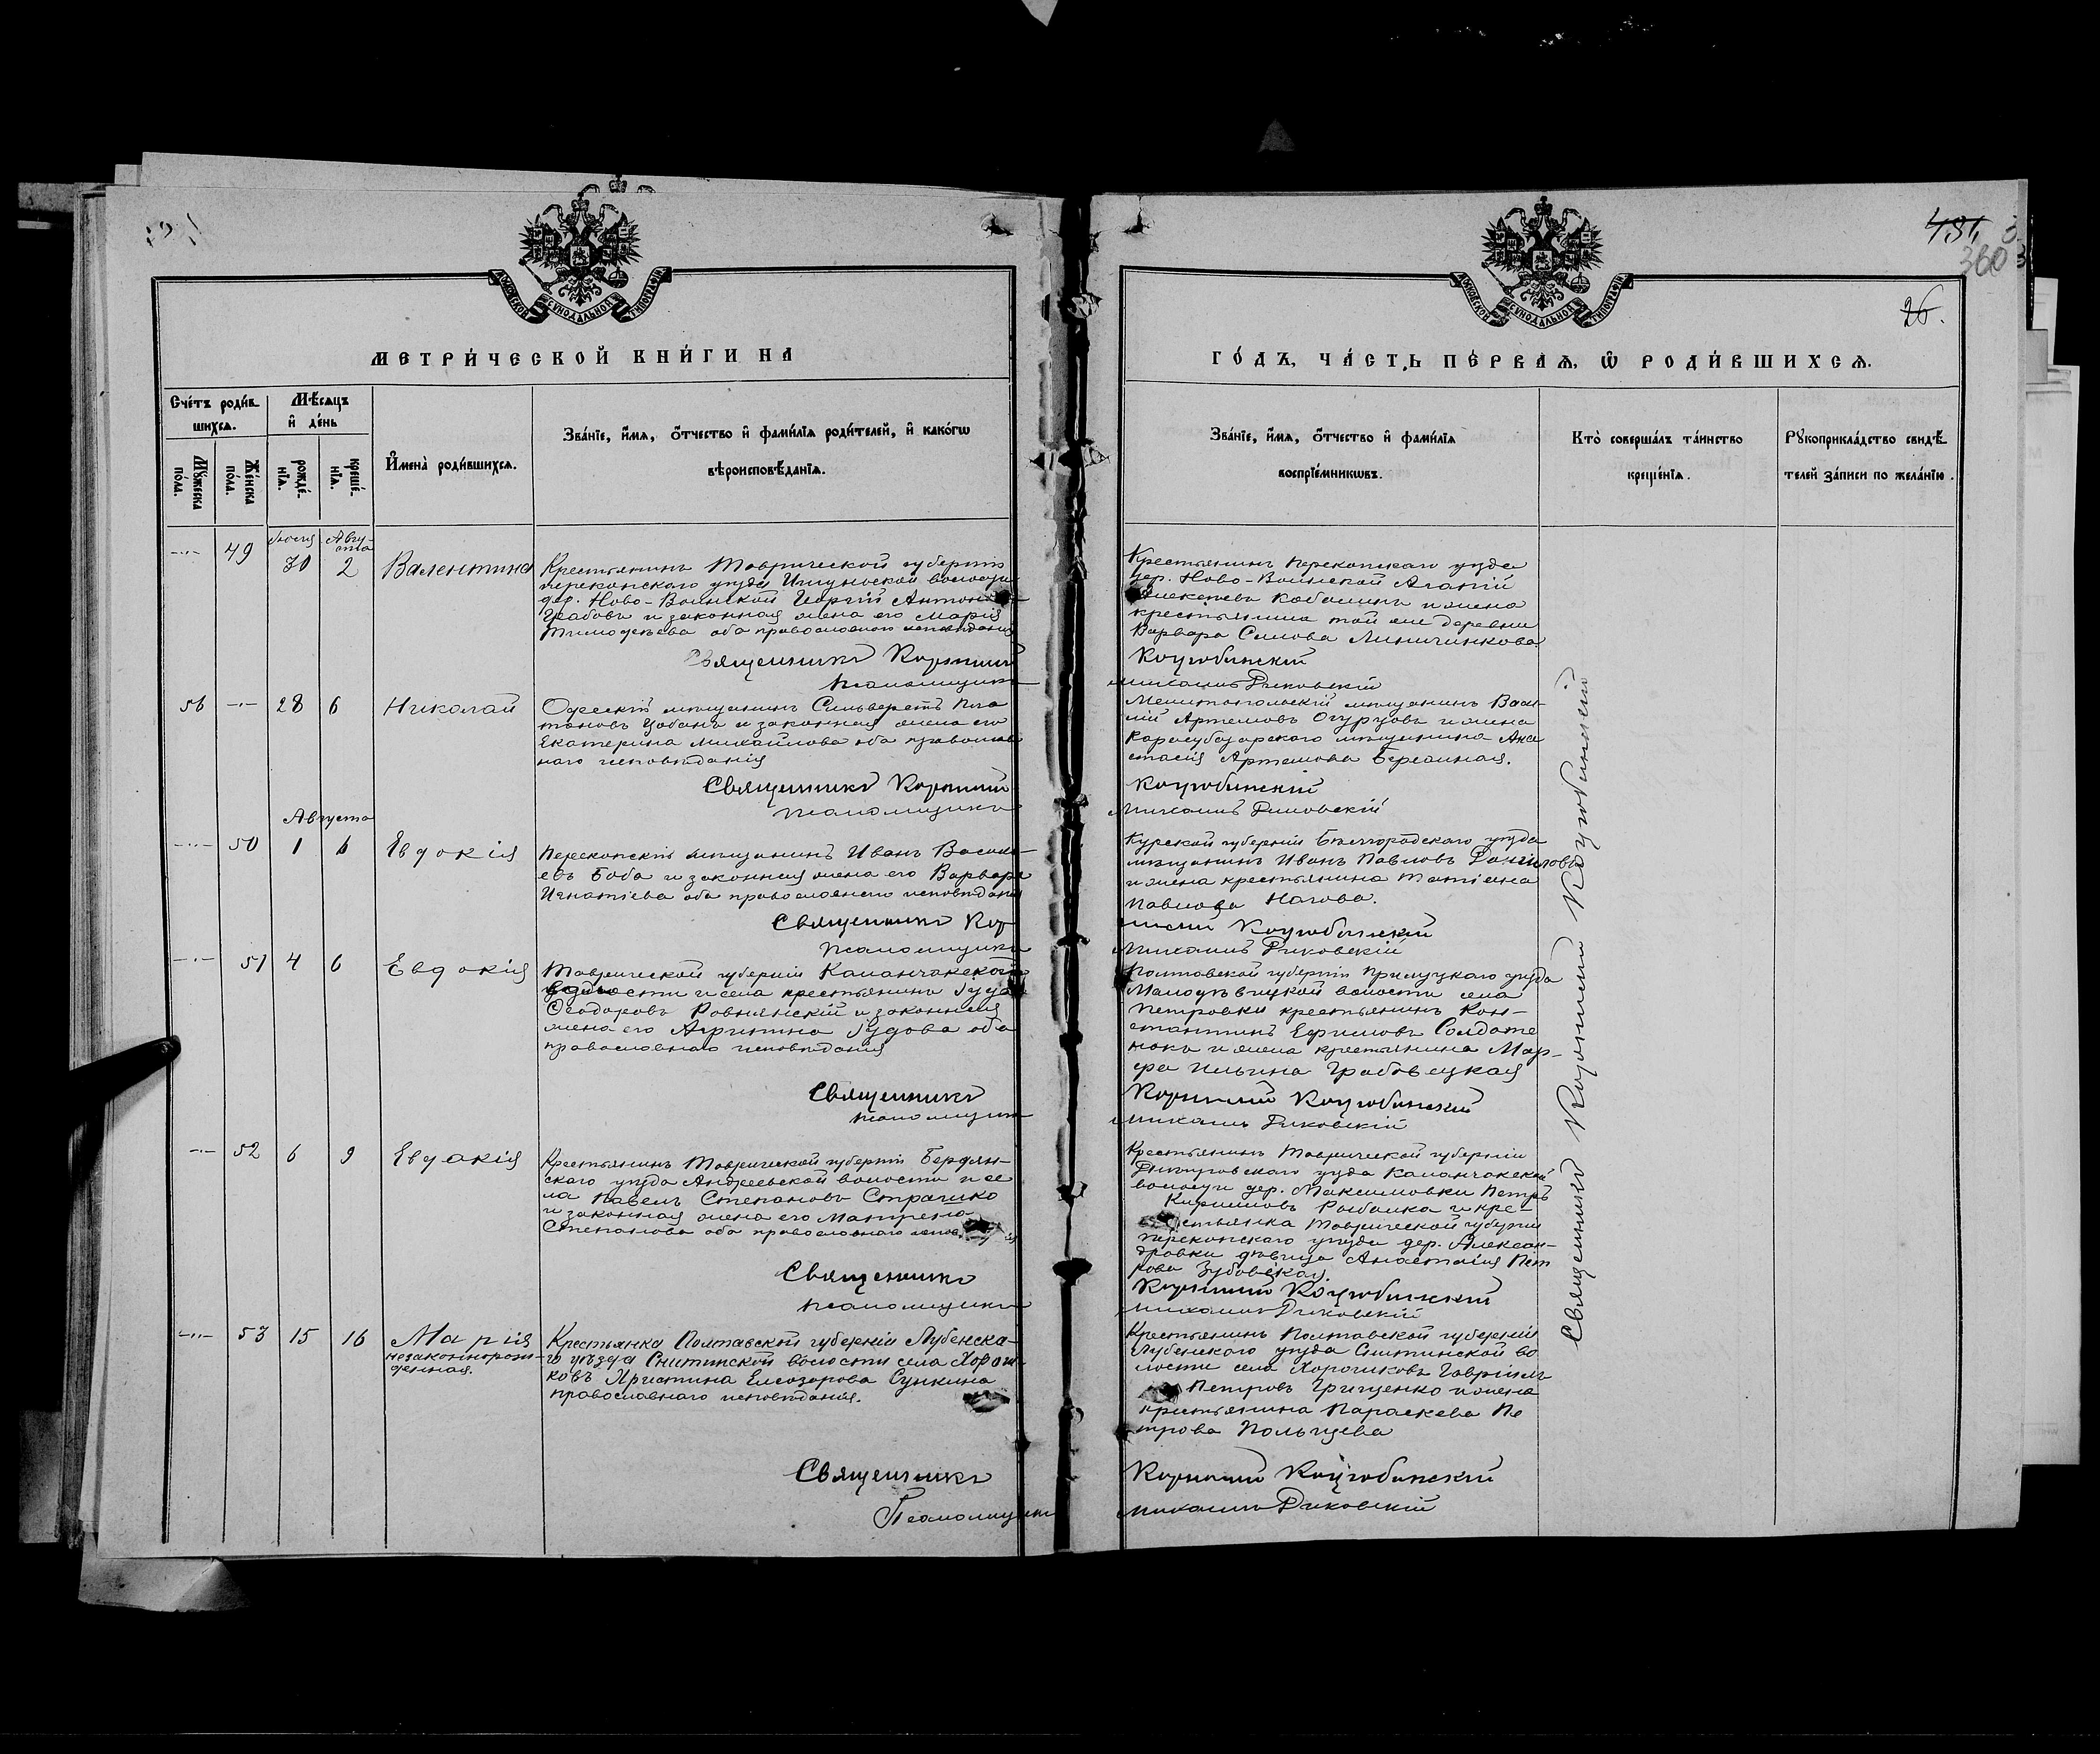 МОСКОВСКОЙ СѴНОДАЛЬНОЙ ТИПОГРАФІИ
МЕТРИ́ЧЕСКОЙ КНИ́ГИ НА
Сче́тъ роди́в-
шихсѧ.
Мѣ́сѧцъ
и҆ де́нь
Мꙋ́жеска
по́ла.
Же́нска
по́ла.
рожде́-
нїѧ.
креще́-
нїѧ.
И҆мена̀ роди́вшихсѧ.
Зва́нїе, и҆́мѧ, ѻ҆́тчество и҆ фами́лїѧ роди́телей, и҆ како́гѡ
вѣроисповѣ́данїѧ.
Іюля
Авгу-
ста
49 30 2 Валентина
Крестьянинъ Таврической губерніи
перекопскаго уѣзда Ишуньской волости
дер. Ново-Воинской Георгій Антонов
Грабовъ и законная жена его Марія
Тимофѣева оба православнаго исповѣданія
Священникъ Корнилій
Псаломщикъ
56 28 6 Николай
Одесскій мѣщанинъ Сильверстъ Пла
тоновъ Цобанъ и законная жена его
Екатерина Михайлова оба православ
наго исповѣданія
Священникъ Корнилій
Псаломщикъ
Августа
50 1 6 Евдокія
Перекопскій мѣщанинъ Иванъ Василь-
евъ Боба и законная жена его Варвара
Игнатіева оба православнаго исповѣданія
Священникъ Кор
Псаломщикъ
51 4 6 Евдокія
Таврической губерніи Каланчакской
волости и села крестьянинъ Гуда
Ѳеодоровъ Ровнянскій и законная
жена его Агрипина Гудова оба
православнаго исповѣданія
Священникъ
Псаломщик
52 6 9 Евдокія
Крестьянинъ Таврической губерніи Бердян-
скаго уѣзда Андреевской волости и се
ла Павелъ Степановъ Страшко
и законная жена его Матрена
Степанова оба православнаго испов
Священникъ
Псаломщикъ
53 15 16 Марія
незаконнорож-
денная.
Крестьянка Полтавской губерніи Лубенска-
го уѣзда Снитинской волости села Хорош-
ковъ Христина Елеазарова Сункина
православнаго исповѣданія.
Священникъ
Псаломщик
МОСКОВСКОЙ СѴНОДАЛЬНОЙ ТИПОГРАФІИ
481,
360
26.
ГО́ДЪ, ЧА́СТЬ ПЕ́РВАѦ, Ѡ҆ РОДИ́ВШИХСѦ.
Зва́нїе, и҆́мѧ, ѻ҆́тчество и҆ фами́лїѧ
воспрїе́мникѡвъ.
Кто̀ соверша́лъ та́инство
креще́нїѧ.
Рꙋкоприкла́дство свидѣ́-
телей за́писи по жела́нїю.
Крестьянинъ Перекопскаго уѣзда
дер. Ново-Воинской Агапій
Алексѣевъ Кобалинъ и жена
крестьянина той же деревни
Варвара Силова Линиченкова
Коцюбинскій
Михаилъ Диковскій
Мелитопольскій мѣщанинъ Васи-
лій Артемовъ Огурцовъ и жена
Карасубазарскаго мѣщанина Ана
стасія Артемова Бережная.
Коцюбинскій
Михаилъ Диковскій
Курской губерніи Бѣлгородскаго уѣзда
мѣщанинъ Иванъ Павловъ Даниловъ
и жена крестьянина Татіана
Павлова Нагова.
нилій Коцюбинскій
Михаилъ Диковскій
Полтавской губерніи Прилуцкаго уѣзда
Малодѣвицкой волости села
Петровки крестьянинъ Кон-
стантинъ Ефимовъ Солдате
нокъ и жена крестьянина Мар-
фа Ильина Грабовецкая
Корнилій Коцюбинскій
Михаилъ Диковскій
Крестьянинъ Таврической губерніи
Днѣпровскаго уѣзда Каланчакской
волости дер. Максимовки Петръ
Кириловъ Рыбалка и кре-
стьянка Таврической губерніи
перекопскаго уѣзда дер. Алексан-
дровки дѣвица Анастасія Пет
рова Зубовская.
Корнилій Коцюбинскій
Михаилъ Диковскій
Крестьянинъ Полтавской губерніи
Лубенскаго уѣзда Снитинской во
лости села Хорошковъ Гавріилъ
Петровъ Грищенко и жена
крестьянина Параскева Пе
трова Польщева
Корнилій Коцюбинскій
Михаилъ Диковскій
Священникъ Корнилій Коцюбинскій